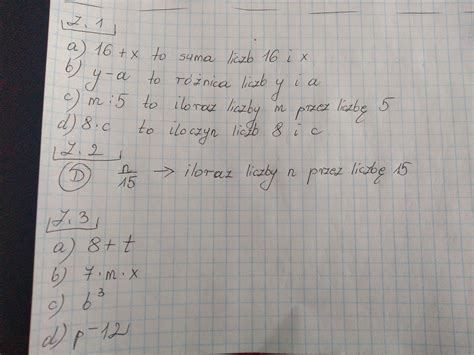 Z.1
a) 16 + x to suma liczb 16 i x
b) y - a to różnica liczb y i a
c) m : 5 to iloraz liczby m przez liczbę 5
d) 8 · c to iloczyn liczb 8 i c
Z.2
D n/15 → iloraz liczby n przez liczbę 15
Z.3
a) 8 + t
b) 7 · m · x
c) b³
d) p - 12